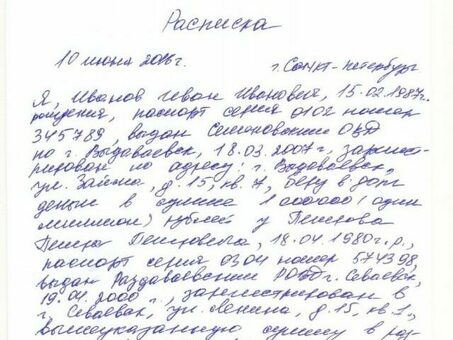 Расписка
10 июня 2016г. г. Санкт-Петербург
Я, Иванов Иван Иванович, 15.02.1987г.
рождения, паспорт серия 0102 номер
345789, выдан ОВД
по г. Выдаваевск, 18.03.2007г., зареги-
рирован по адресу: г. Выдаваевск,
ул. д. 15, кв. 7, беру в долг
деньги в сумме 1 000000 (один
миллион) рублей у Петрова
Петра Петровича, 18.04.1980г.р.,
паспорт серия 0304 номер 574398,
выдан Раздаваевским РОВД г. Севаевск,
19.04.2000г., зарегистрирован в
г. Севаевск, ул. Ленина, д. 15, кв. 1,
вышеуказанную сумму в